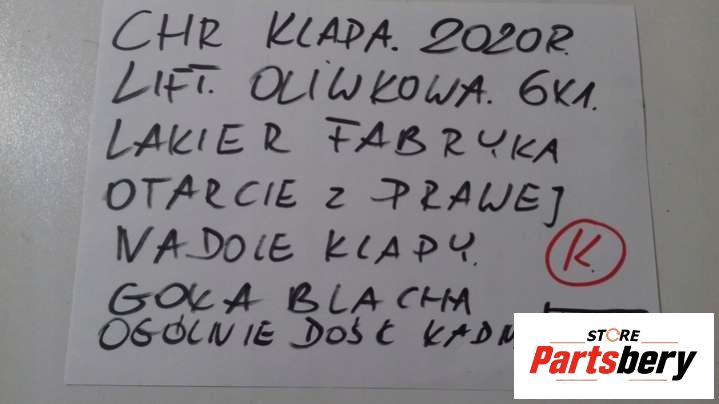 CHR KLAPA. 2020R.
LIFT. OLIWKOWA. 6X1.
LAKIER FABRYKA
OTARCIE Z PRAWEJ
NA DOLE KLAPY.
K.
GOŁA BLACHA
OGÓLNIE DOŚĆ
STORE
Partsbery